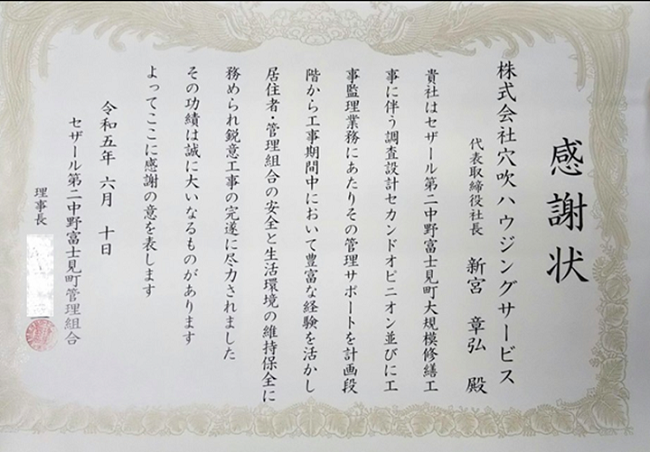 感謝状
株式会社穴吹ハウジングサービス
代表取締役社長 新宮 章弘 殿
貴社はセザール第二中野富士見町大規模修繕工
事に伴う調査設計セカンドオピニオン並びに工
事監理業務にあたりその管理サポートを計画段
階から工事期間中において豊富な経験を活かし
居住者・管理組合の安全と生活環境の維持保全に
務められ鋭意工事の完遂に尽力されました
その功績は誠に大いなるものがあります
よってここに感謝の意を表します
令和五年 六月 十日
セザール第二中野富士見町管理組合
理事長